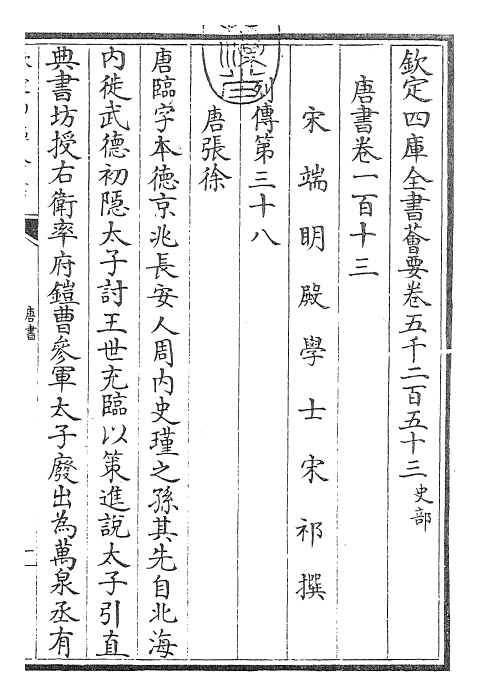 欽定四庫全書薈要卷五千二百五十三 史部
唐書卷一百十三
宋端明殿學士宋祁撰
列傳第三十八
唐張徐
唐臨字本德京兆長安人周內史瑾之孫其先自北海
內徙武德初隱太子討王世充臨以策進說太子引直
典書坊授右衛率府鎧曹參軍太子廢出為萬泉丞有
唐書